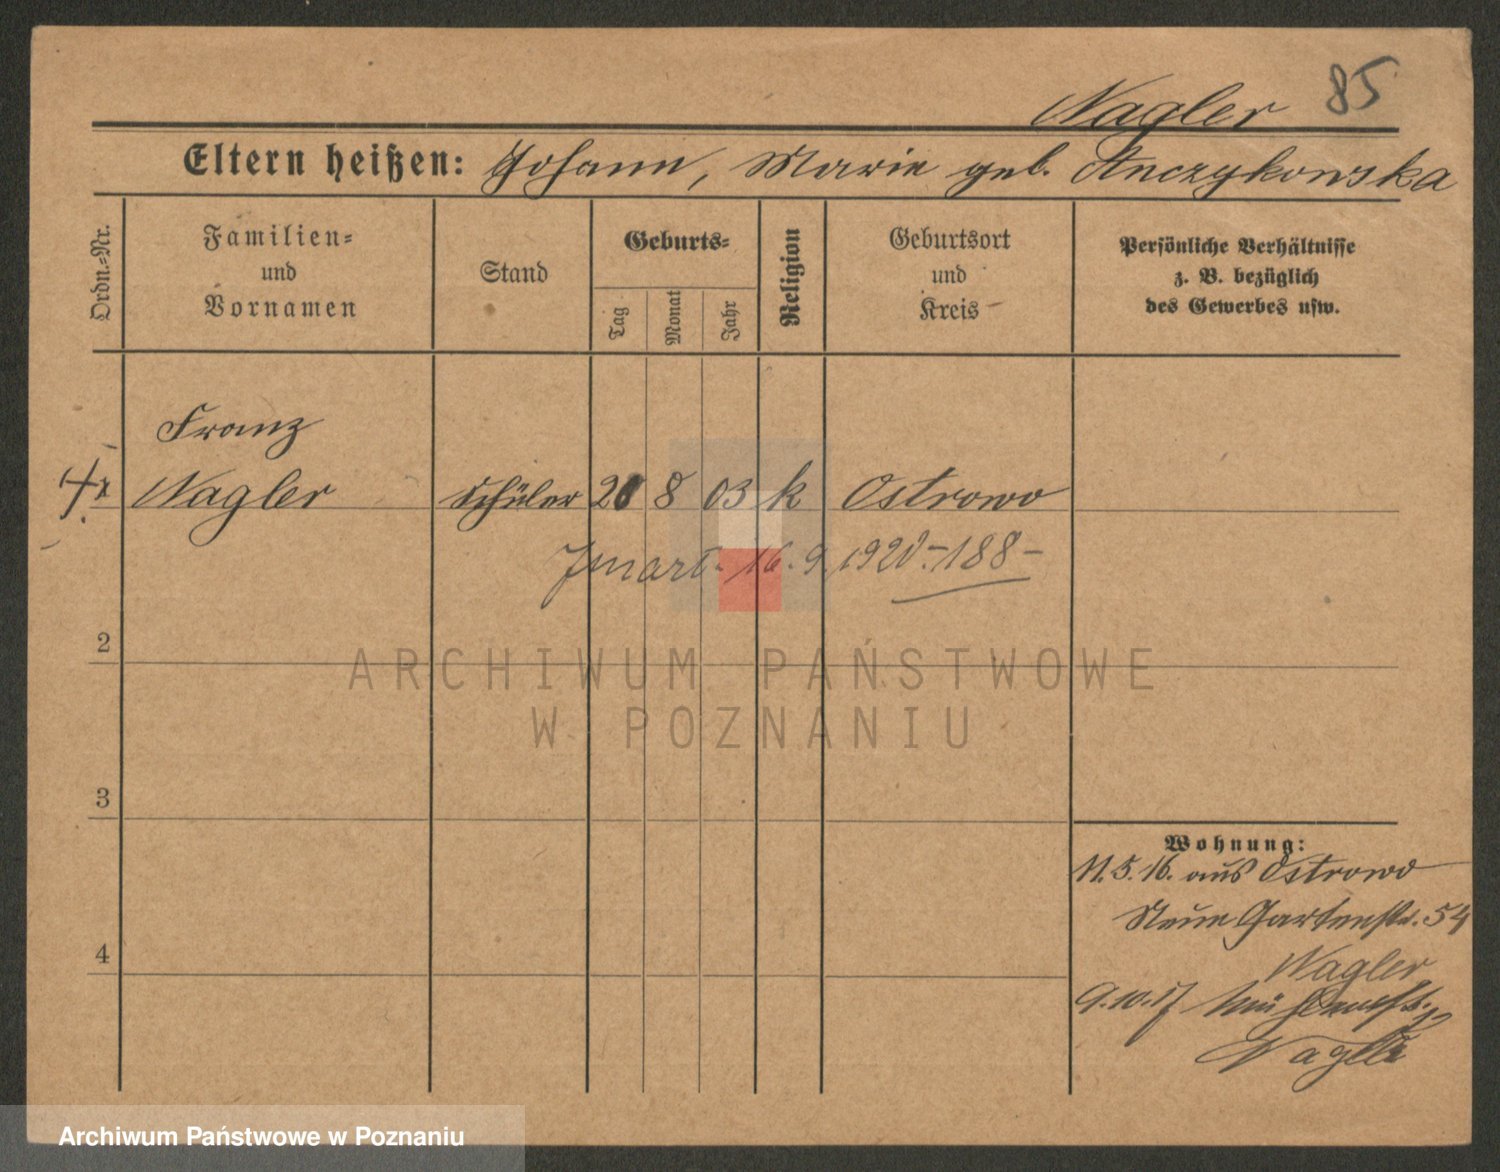 Nagler 85
Eltern heißen: Johann, Marie geb. Anczykowska
Ordn.-Nr.
Familien- und Vornamen
Stand
Geburts-
Tag
Monat
Jahr
Religion
Geburtsort und Kreis
Persönliche Verhältnisse
z. B. bezüglich
des Gewerbes usw.
Franz
Nagler Schüler 8 03 k Ostrowo
16. 9. 1920 188
2
ARCHIWUM PAŃSTWOWE
W POZNANIU
3
Wohnung:
11.5.16. aus Ostrowo
Neue Gartenstr. 54
4
Nagler
9.10.17
Nagler
Archiwum Państwowe w Poznaniu